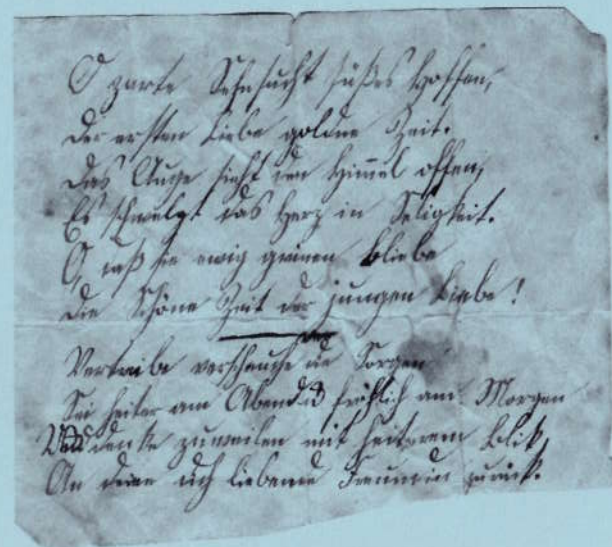 O zarte Sehnsucht süßes Hoffen,
Der ersten Liebe goldne Zeit.
Das Auge sieht den Himmel offen,
Es schwelgt das Herz in Seligkeit.
O, daß sie ewig grünen bliebe
Die Schöne Zeit der jungen Liebe!
Vertreibe verscheuche die Sorgen
Sei heiter am Abend u fröhlich am Morgen
Und denke zuweilen mit heiterem Blik,
An deine dich liebende Freundin zurück.